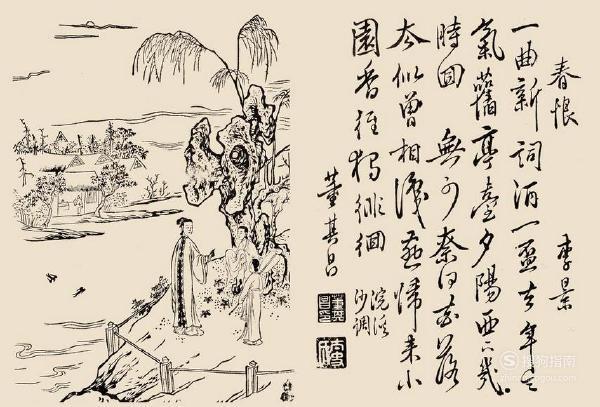 春恨 李景
一曲新詞酒一盃去年天
氣舊亭臺夕陽西下幾
時回 無可奈何花落
去似曾相識燕歸来小
園香徑獨徘徊
浣溪
沙調
董其昌
搜狗指南